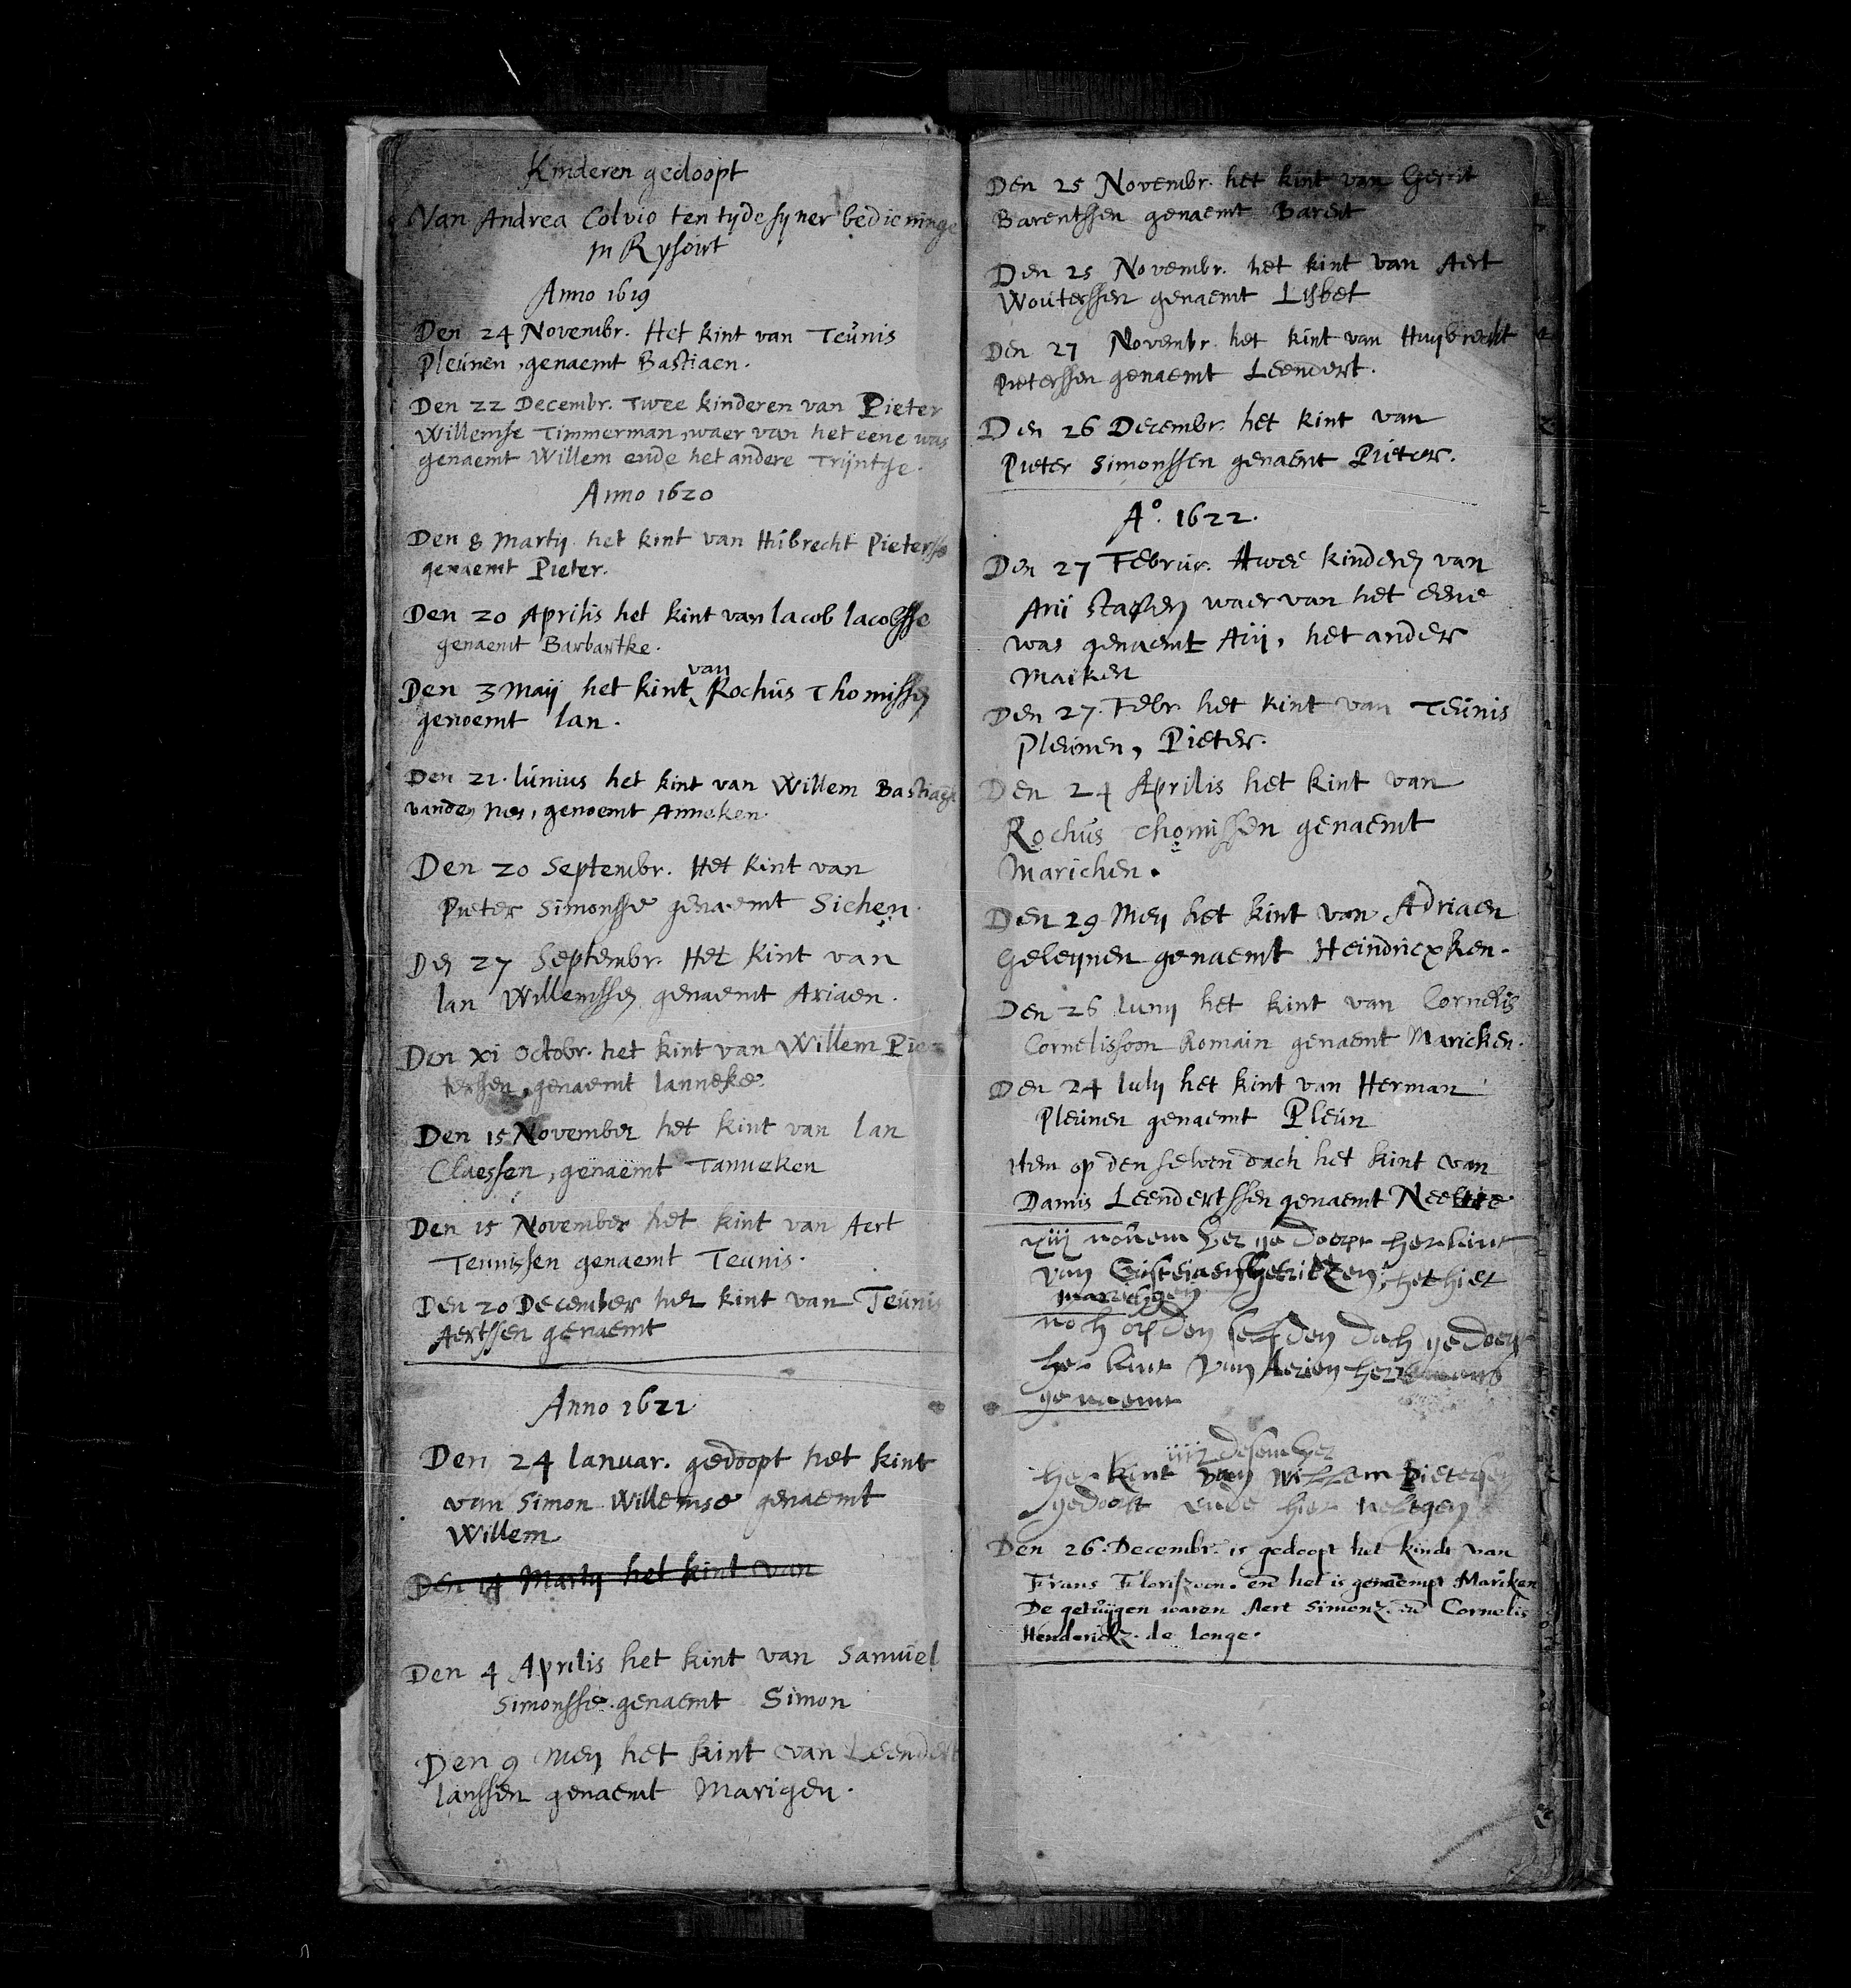 Kinderen gedoopt
Van Andrea Colvio ten tyde syner bedieninge
in Rysoirt
Anno 1619
Den 24 Novembr. Het kint van Teunis
Pleunen, genaemt Bastiaen.
Den 22 Decembr. Twee kinderen van Pieter
Willemse Timmerman, waer van het eene was
genaemt Willem ende het andere Trijntge.
Anno 1620
Den 8 Martij het kint van Hubrecht Pietersse
genaemt Pieter.
Den 20 Aprilis het kint van Iacob Iacobsse
genaemt Barbartke.
Den 3 Maij het kint van Rochus Thomissen
genoemt Ian.
Den 21. Iunius het kint van Willem Bastiaen
vanden Nes, genoemt Anneken.
Den 20 Septembr. Het kint van
Pieter Simonsse genaemt Sichen.
Den 27 Septembr. Het kint van
Ian Willemssen genaemt Ariaen.
Den xi Octobr. het kint van Willem Pie
terssen, genaemt Ianneke.
Den 15 November het kint van Ian
Claessen, genaemt Tanneken
Den 15 November het kint van Aert
Teunissen genaemt Teunis.
Den 20 December het kint van Teunis
Aertssen genaemt
Anno 1621
Den 24 Ianuar. gedoopt het kint
van Simon Willemse genaemt
Willem
Den 14 Martij het kint van
Den 4 Aprilis het kint van Samuel
Simonsse genaemt Simon
Den 9 Meij het kint van Leendert
Ianssen genaemt Marigen.
Den 25 Novembr. het kint van Gerrit
Barentssen genaemt Barent
Den 25 Novembr. het kint van Aert
Wouterssen genaemt Lisbet
Den 27 Novembr. het kint van Huijbrecht
Pieterssen genaemt Leendert.
Den 26 Decembr. het kint van
Pieter Simonssen genaemt Pieter.
A°. 1622.
Den 27 Februr. Twee kinderen van
Arij Stassen waer van het eene
was genaemt Arij, het ander
Maiken
Den 27. Febr. het kint van Teunis
Pleunen, Pieter.
Den 24 Aprilis het kint van
Rochus Thomissen genaemt
Marichen.
Den 29 Meij het kint van Adriaen
Geleijnen genaemt Heindricxken.
Den 26 Iunij het kint van Cornelis
Cornelissoon Romain genaemt Maricken.
Den 24 Iulij het kint van Herman
Pleunen genaemt Pleun
Item op den selven dach het kint van
Damis Leendertssen genaemt Neeltie
xiij november gedoept het kint
van het hiet
marichgen
noch op den selfden dach gedoep
het kint van Aerien
genaemt
iiij desember
het kint van Willem Pietersen
gedoopt ende hiet neltgen
Den 26. Decembr. is gedoopt het kindt van
Frans Floriszoon. en het is genaempt Mariken
De getuijgen waren Aert Simonz. en Cornelis
Henderickz. de Ionge.